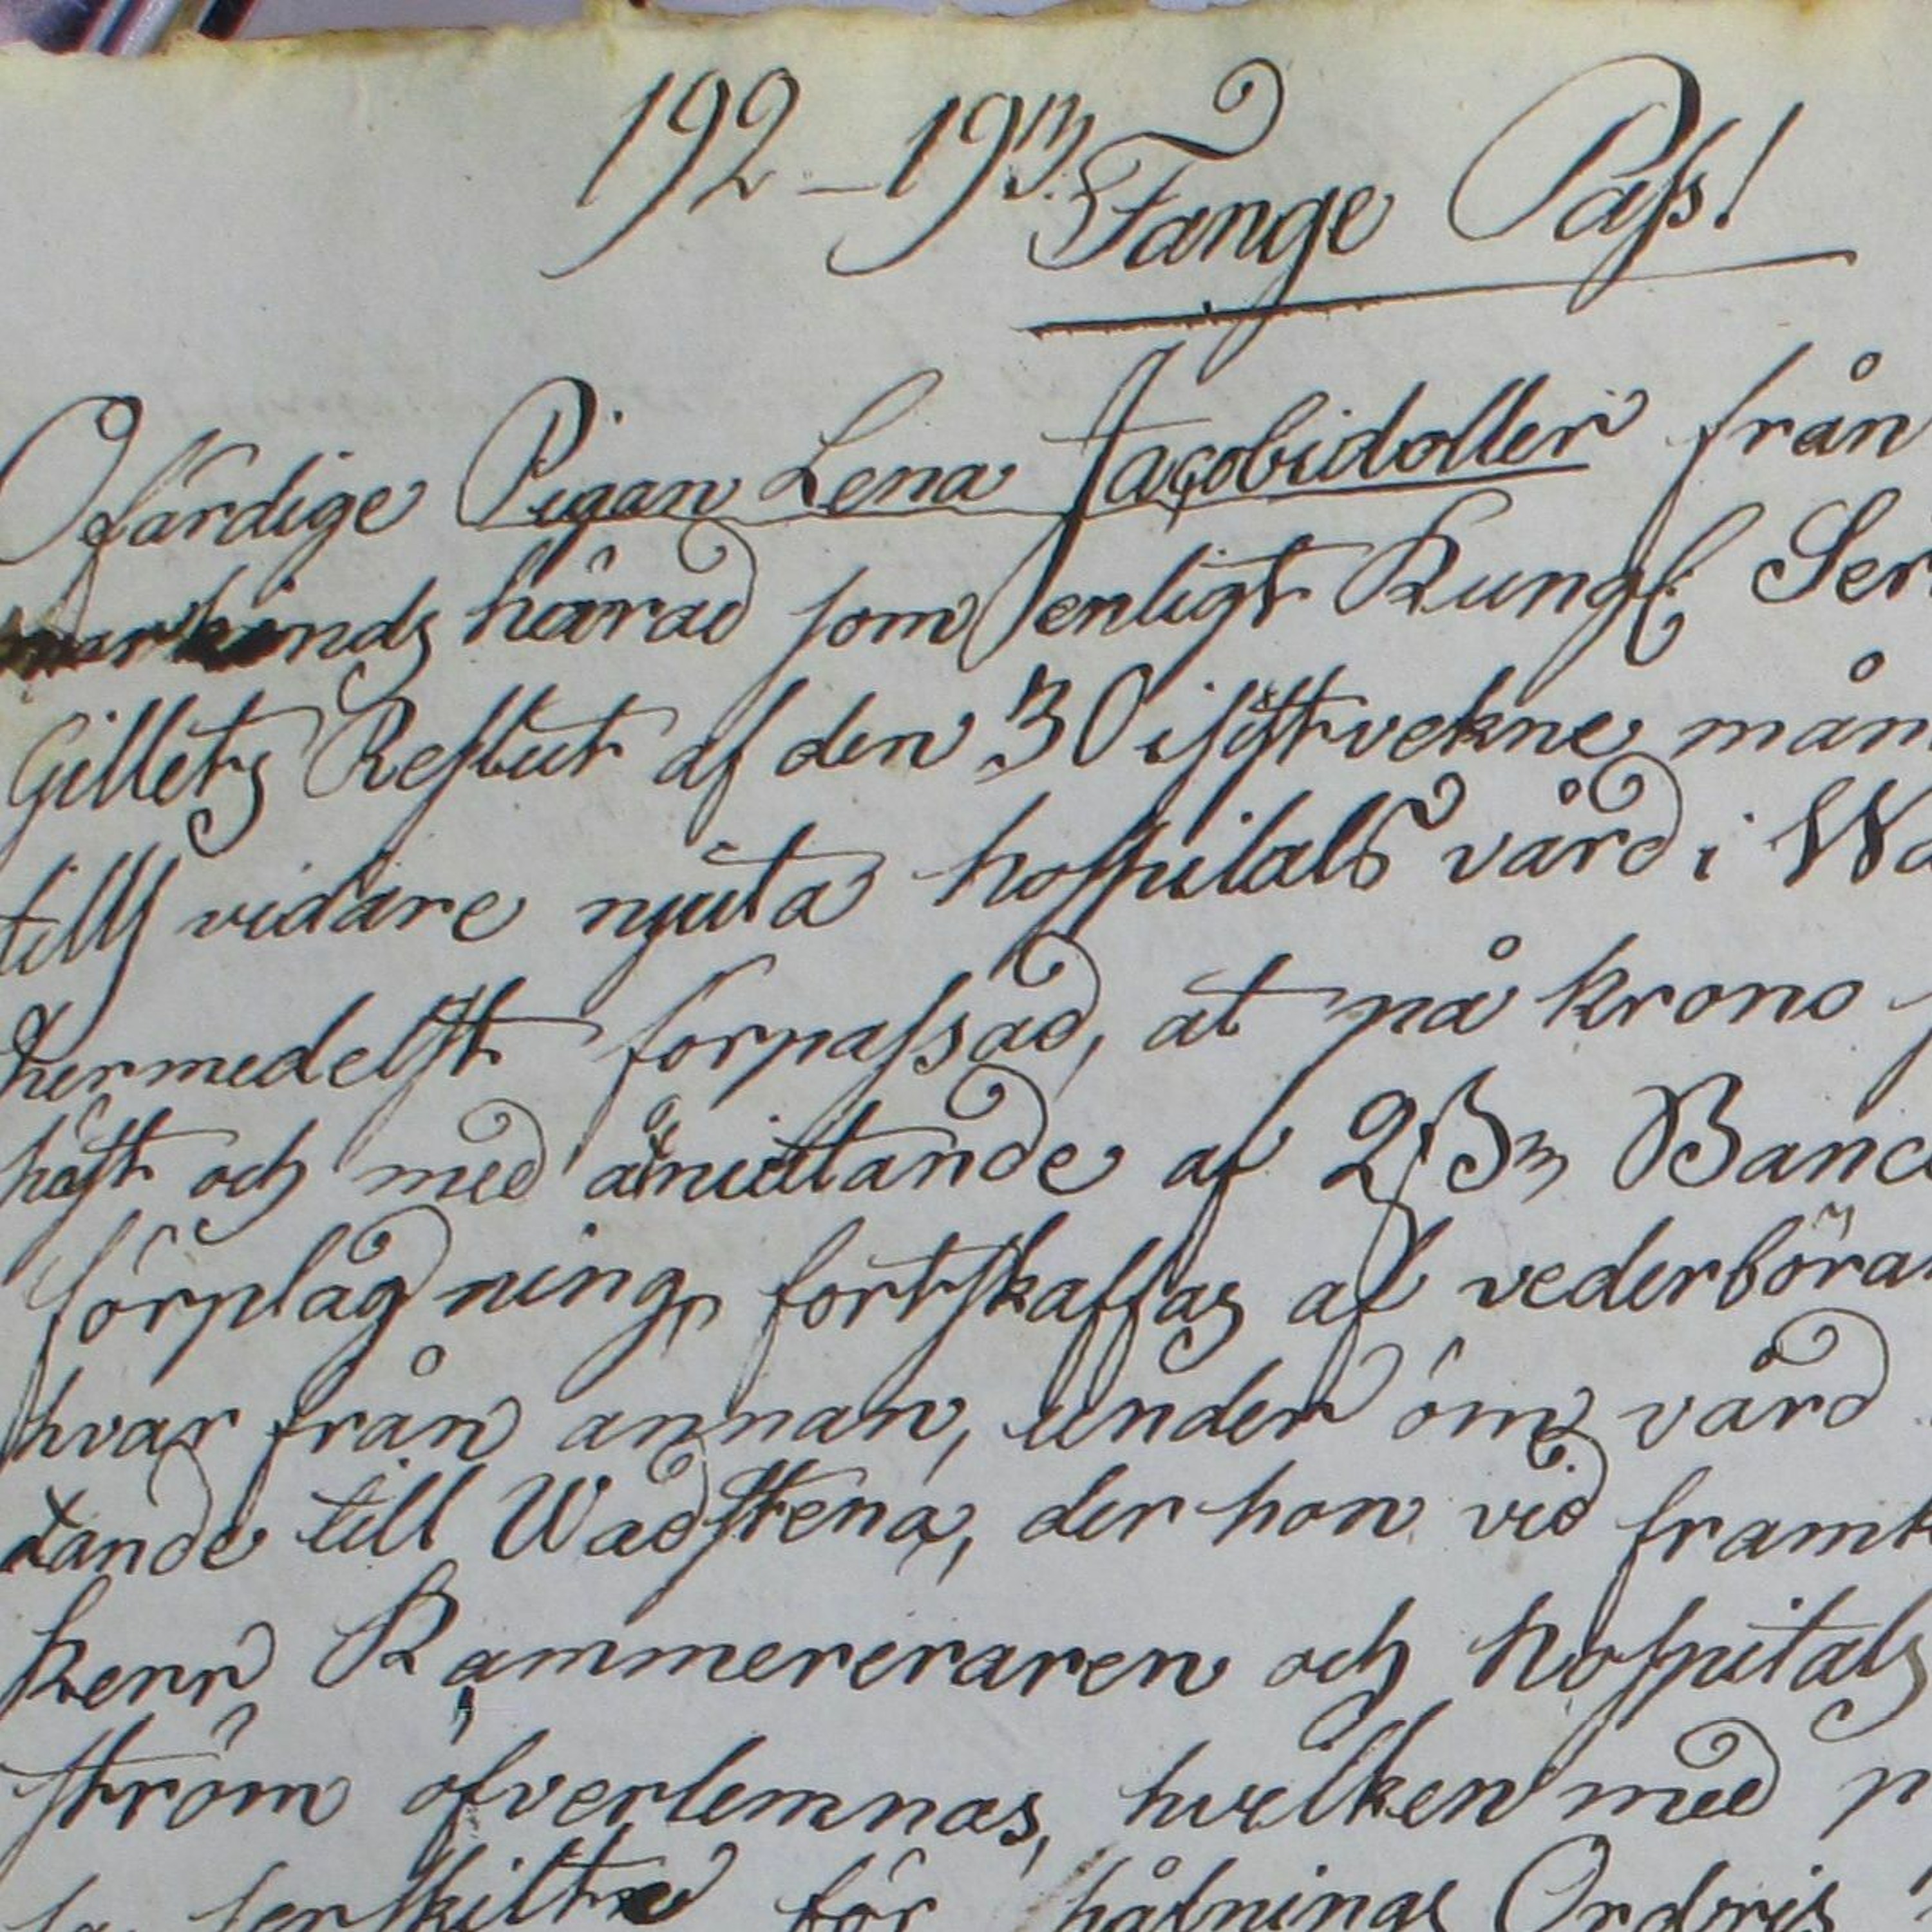 192–193
Fånge Pass!
Ofärdige Pigan Lena Jacobsdotter från
härad som enligt Kungl. Ser
Gillets Beslut af den 30 sistvekne mån
tills vidare njuta hospitals vård i Wa
hermedelst förpassad, at på krono
häst och med åtniutande af 2 ß Banco
förplägning, fortskaffas af vederböran
hvar från annan, under öm vård
tande till Wadstena, der hon vid framk
herr Kammereraren och hospitals
ström öfverlemnas, hvilken med
serskilte för hålnings Ordres